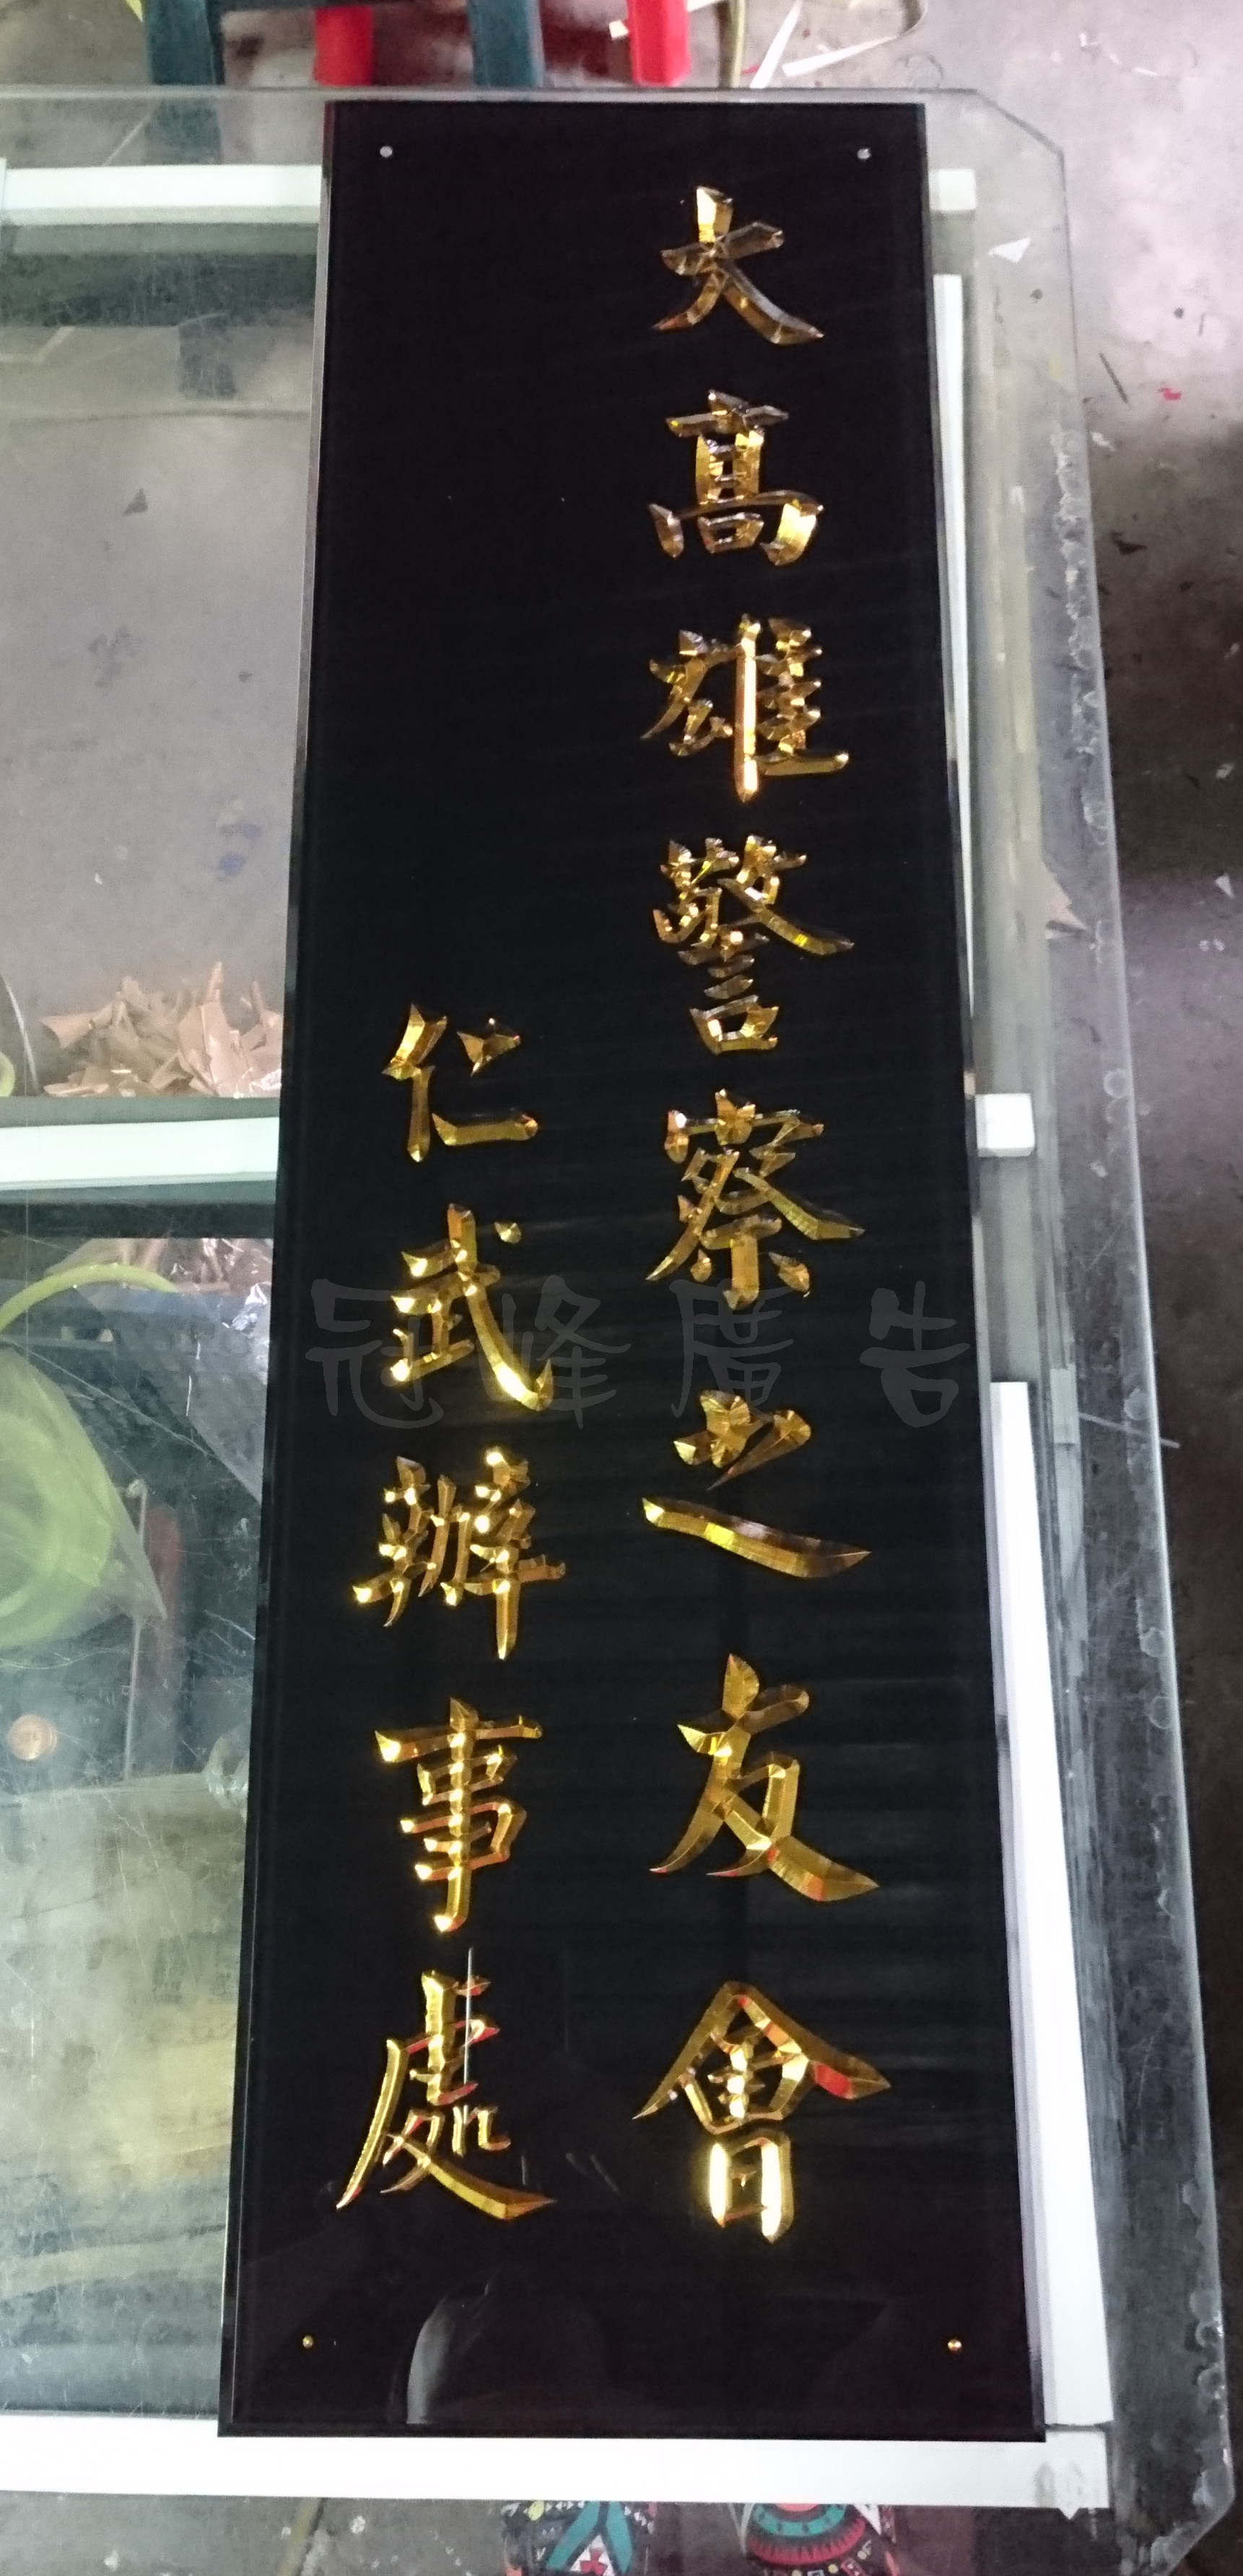 大高雄警察之友會
仁武辦事處
冠峰廣告